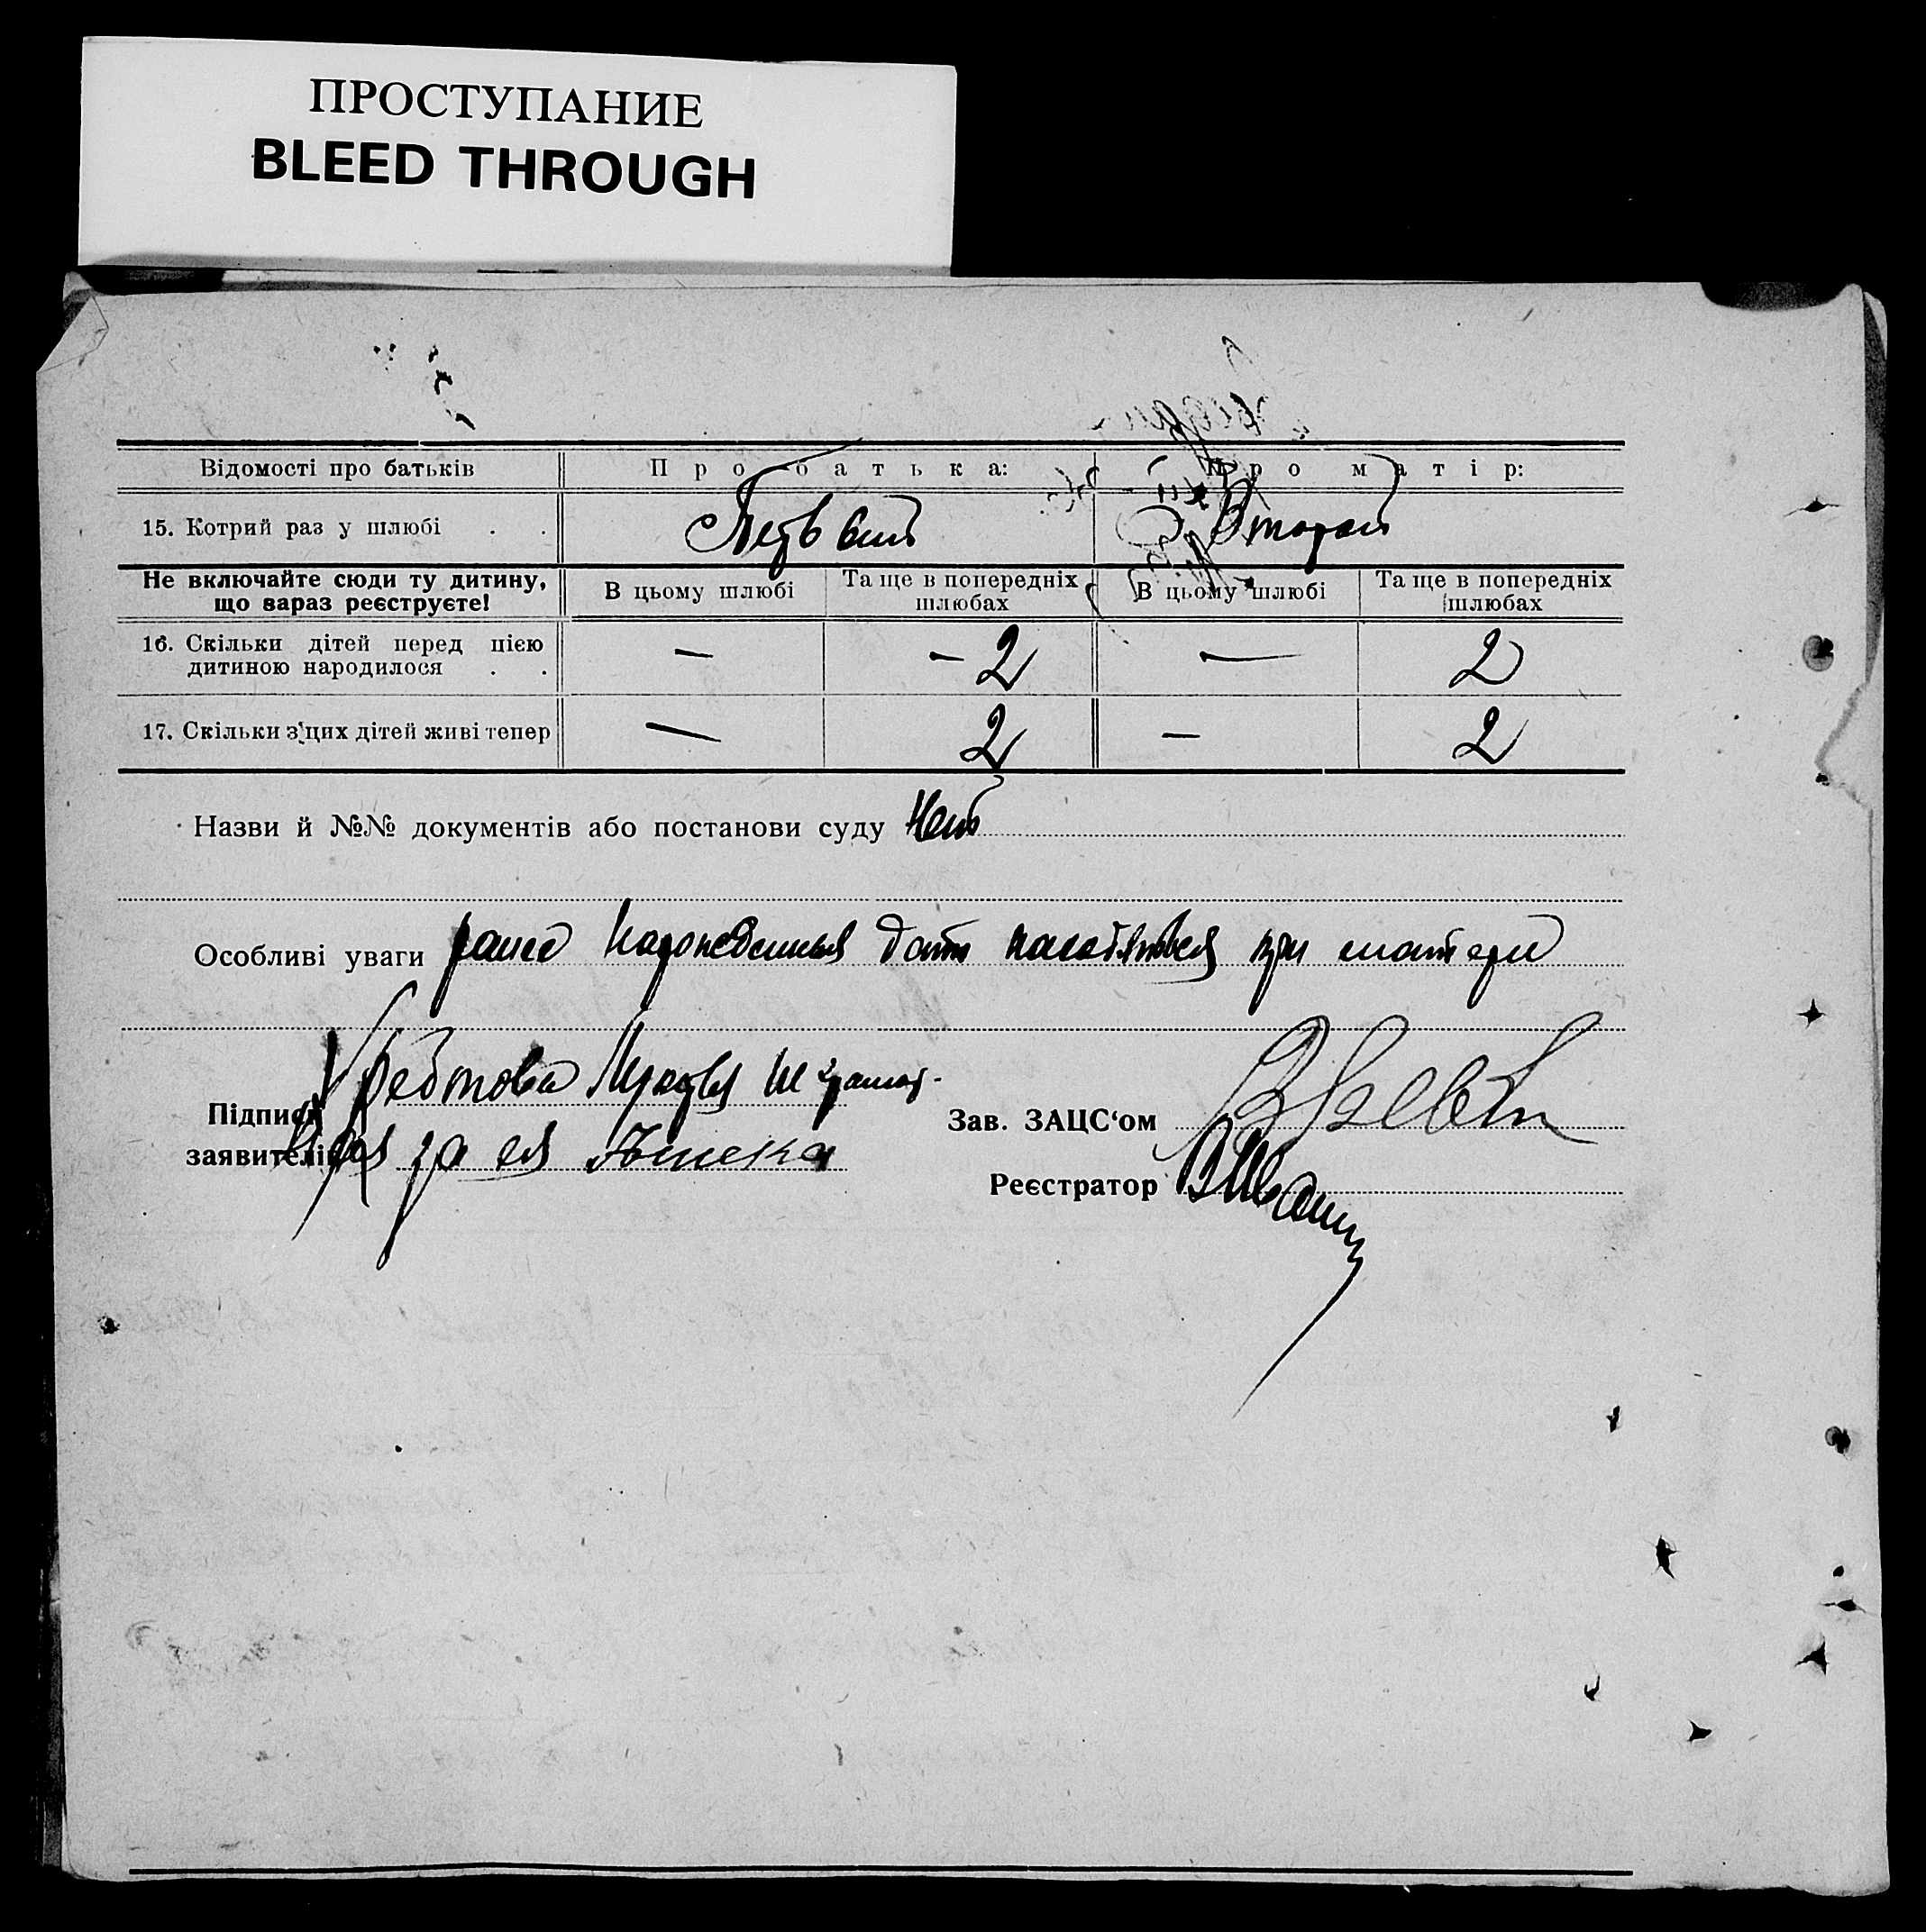 ПРОСТУПАНИЕ
BLEED THROUGH
Відомості про батьків Про батька: Про матір:
15. Котрий раз у шлюбі . . Первый Второй
Не включайте сюди ту дитину, що вараз реєструєте! В цьому шлюбі Та ще в попередніх шлюбах В цьому шлюбі Та ще в попередніх шлюбах
16. Скільки дітей перед цією дитиною народилося . . — – 2 — 2
17. Скільки з цих дітей живі тепер — 2 — 2
Назви й №№ документів або постанови суду Нет
Особливі уваги ранее дети при матери
Підписи
заявителів за ея
Зав. ЗАЦС‘ом
Реєстратор